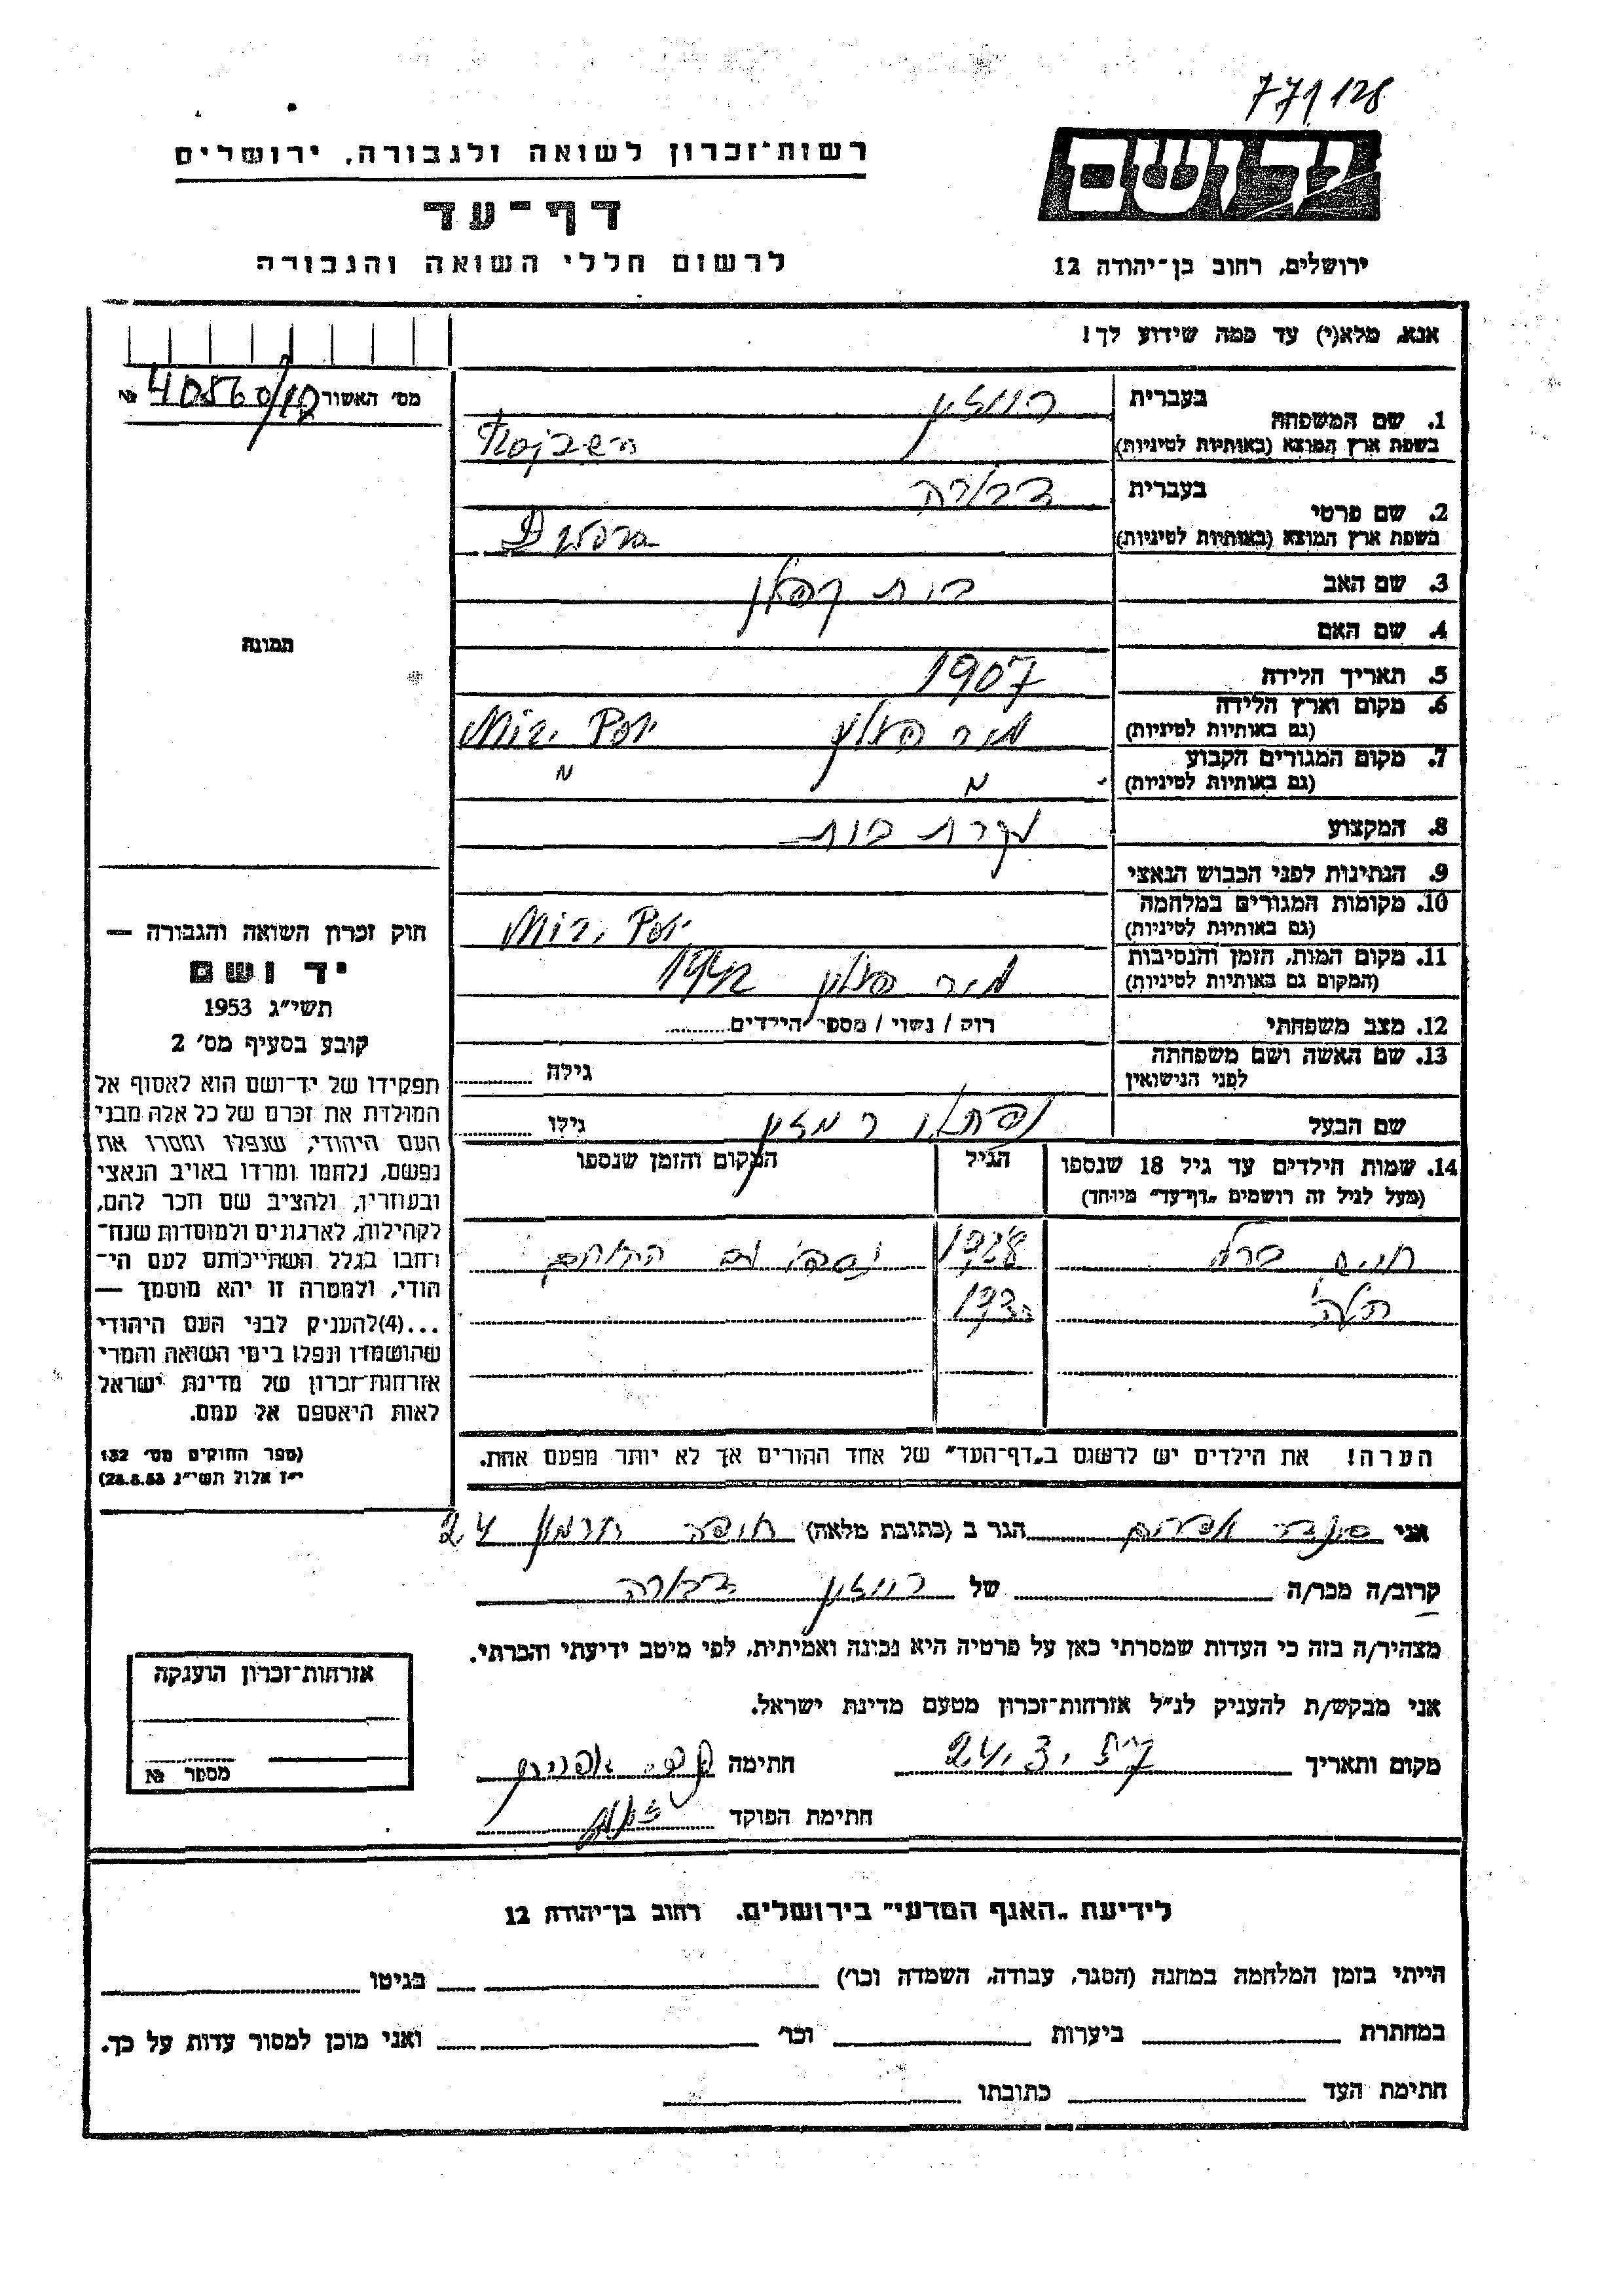 771128
רשות־זכרון לשואה ולגבורה, ירושלים
יד ושם
דף־עד
לרשום חללי השואה והגבורה
ירושלים, רחוב בן־יהודה 12
אנא, מלא(י) עד כמה שידוע לך!
מס' האשור № 40560/12
1. שם המשפחה
בעברית
בשפת ארץ המוצא (באותיות לטיניות)
2. שם פרטי
בעברית דבורה
בשפת ארץ המוצא (באותיות לטיניות) Dwora
3. שם האב
4. שם האם
5. תאריך הלידה 1907
6. מקום וארץ הלידה
(גם באותיות לטיניות) מיר פולין Mir. Pol
7. מקום המגורים הקבוע
(גם באותיות לטיניות) " "
8. המקצוע עקרת בית
9. הנתינות לפני הכבוש הנאצי
10. מקומות המגורים במלחמה
(גם באותיות לטיניות) Mir. Pol
11. מקום המות, הזמן והנסיבות
(המקום גם באותיות לטיניות) מיר פולין 1942
12. מצב משפחתי רוק / נשוי / מספר הילדים
13. שם האשה ושם משפחתה
לפני הנישואין
גילה
שם הבעל נפתלי
גילו
14. שמות הילדים עד גיל 18 שנספו
(מעל לגיל זה רושמים „דף־עד" מיוחד)
הגיל
המקום והזמן שנספו
חיים ברל 1928 נספו עם הוריהם
1930
הערה! את הילדים יש לרשום ב„דף־העד" של אחד ההורים אך לא יותר מפעם אחת.
תמונה
חוק זכרון השואה והגבורה —
יד ושם
תשי"ג 1953
קובע בסעיף מס' 2
תפקידו של יד־ושם הוא לאסוף אל
המולדת את זכרם של כל אלה מבני
העם היהודי, שנפלו ומסרו את
נפשם, נלחמו ומרדו באויב הנאצי
ובעוזריו, ולהציב שם וזכר להם,
לקהילות, לארגונים ולמוסדות שנח־
רחבו בגלל השתייכותם לעם הי־
הודי, ולמטרה זו יהא מוסמך —
...(4)להעניק לבני העם היהודי
שהושמדו ונפלו בימי השואה והמרי
אזרחות־זכרון של מדינת ישראל
לאות היאספם אל עמם.
(ספר החוקים מס' 132
י"ז אלול תשי"ג 28.8.53)
אני אפרים הגר ב (כתובת מלאה) חיפה חרמון 24
קרוב/ה מכר/ה של דבורה
מצהיר/ה בזה כי העדות שמסרתי כאן על פרטיה היא נכונה ואמיתית, לפי מיטב ידיעתי והכרתי.
אני מבקש/ת להעניק לנ"ל אזרחות־זכרון מטעם מדינת ישראל.
מקום ותאריך 24.3.57 חתימה
חתימת הפוקד
אזרחות־זכרון הוענקה
מספר №
לידיעת „האגף המדעי" בירושלים. רחוב בן־יהודה 12
הייתי בזמן המלחמה במחנה (הסגר, עבודה, השמדה וכו') בגיטו
במחתרת ביערות וכו' ואני מוכן למסור עדות על כך.
חתימת העד כתובתו